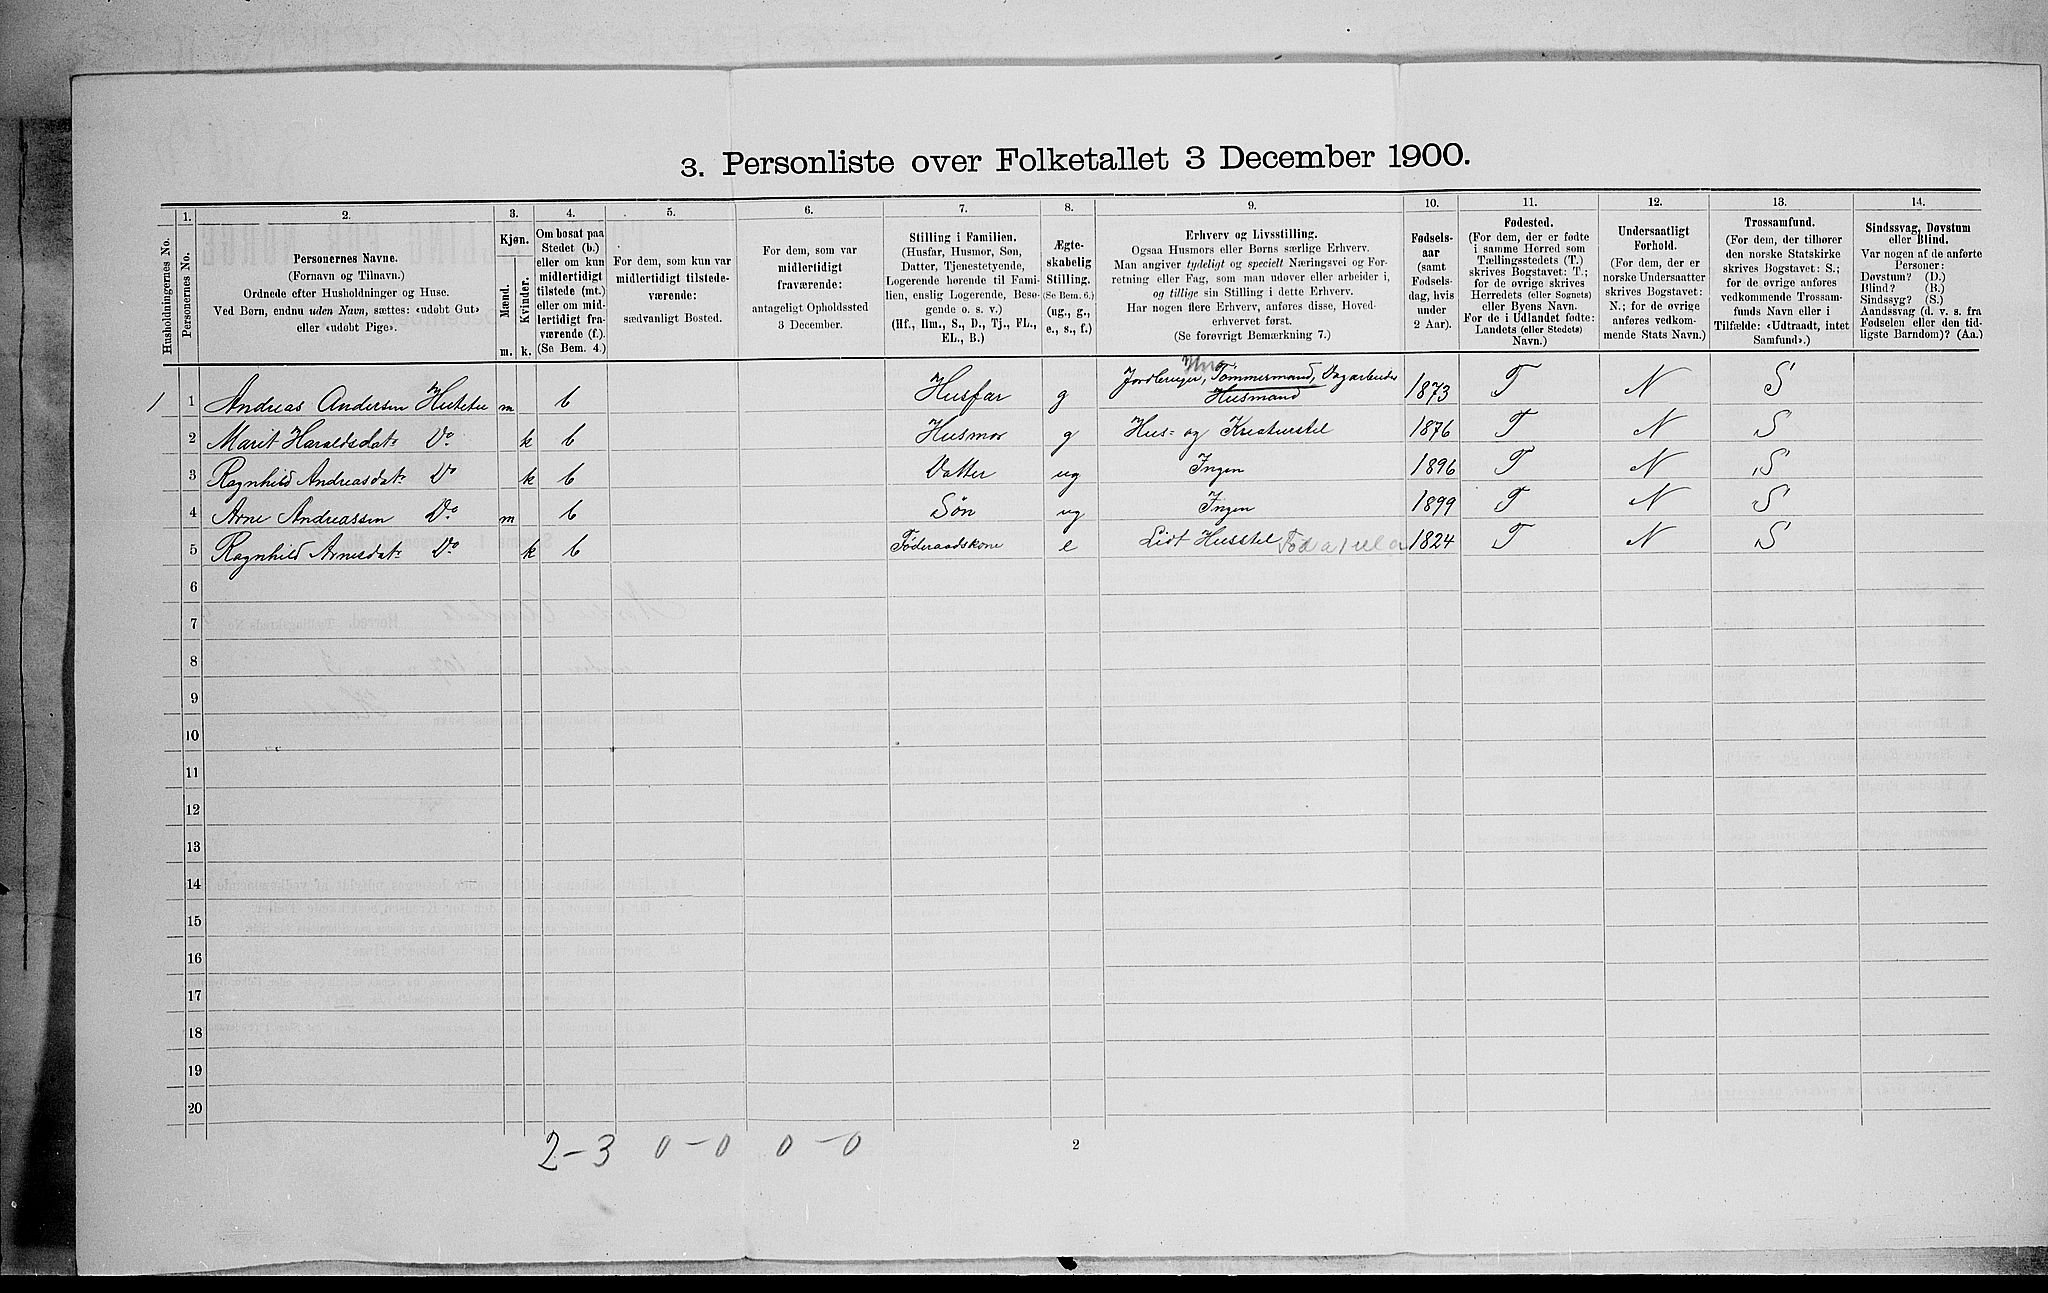 3. Personliste over Folketallet 3 December 1900.
Husholdningernes No.
1.
Personernes No.
2.
Personernes Navne.
(Fornavn og Tilnavn.)
Ordnede efter Husholdninger og Huse.
Ved Børn, endnu uden Navn, sættes: «udøbt Gut»
eller «udøbt Pige».
3.
Kjøn.
Mænd.
Kvinder.
m.
k.
4.
Om bosat paa
Stedet (b.)
eller om kun
midlertidigt
tilstede (mt.)
eller om mid-
lertidigt fra-
værende (f.).
(Se Bem. 4.)
5.
For dem, som kun var
midlertidigt tilstede-
værende:
sædvanligt Bosted.
6.
For dem, som var
midlertidigt
fraværende:
antageligt Opholdssted
3 December.
7.
Stilling i Familien.
(Husfar, Husmor, Søn,
Datter, Tjenestetyende,
Logerende hørende til Fami-
lien, enslig Logerende, Besø-
gende o. s. v.)
(Hf., Hm., S., D., Tj., FL.,
EL., B.)
8.
Ægte-
skabelig
Stilling.
(Se Bem. 6.)
(ug., g.,
e., s., f.)
9.
Erhverv og Livsstilling.
Ogsaa Husmors eller Børns særlige Erhverv.
Man angiver tydeligt og specielt Næringsvei og For-
retning eller Fag, som man udøver eller arbeider i,
og tillige sin Stilling i dette Erhverv.
Har nogen flere Erhverv, anføres disse, Hoved-
erhvervet først.
(Se forøvrigt Bemærkning 7.)
10.
Fødsels-
aar
(samt
Fødsels-
dag, hvis
under
2 Aar).
11.
Fødested.
(For dem, der er fødte
i samme Herred som
Tællingsstedets (T.)
skrives Bogstavet: T.;
for de øvrige skrives
Herredets (eller Sognets)
eller Byens Navn.
For de i Udlandet fødte:
Landets (eller Stedets)
Navn.)
12.
Undersaatligt
Forhold.
(For dem, der er
norske Undersaatter
skrives Bogstavet:
N.; for de øvrige
anføres vedkom-
mende Stats Navn.)
13.
Trossamfund.
(For dem, der tilhører
den norske Statskirke
skrives Bogstavet: S.;
for de øvrige anføres
vedkommende Trossam-
funds Navn eller i
Tilfælde: «Udtraadt, intet
Samfund».)
14.
Sindssvag, Døvstum
eller Blind.
Var nogen af de anførte
Personer:
Døvstum? (D.)
Blind? (B.)
Sindssyg? (S.)
Aandssvag (d. v. s. fra
Fødselen eller den tid-
ligste Barndom)? (Aa.)
1 1 Andreas Andersen m b Husfar g Jordbruger, Tømmermand, Dagarbeider Husmand 1873 T N S
2 Marit Haraldsdatr Do k b Husmor g Hus- og Kreaturstel 1876 T N S
3 Ragnhild Andreasdatr Do k b Datter ug Ingen 1896 T N S
4 Arne Andreassen Do m b Søn ug Ingen 1899 T N S
5 Ragnhild Arnesdatr Do k b Føderaadskone e Lidt Husstel 1824 T N S
6
7
8
9
10
11
12
13
14
15
16
17
18
19
20
2-3 0-0 0-0
2